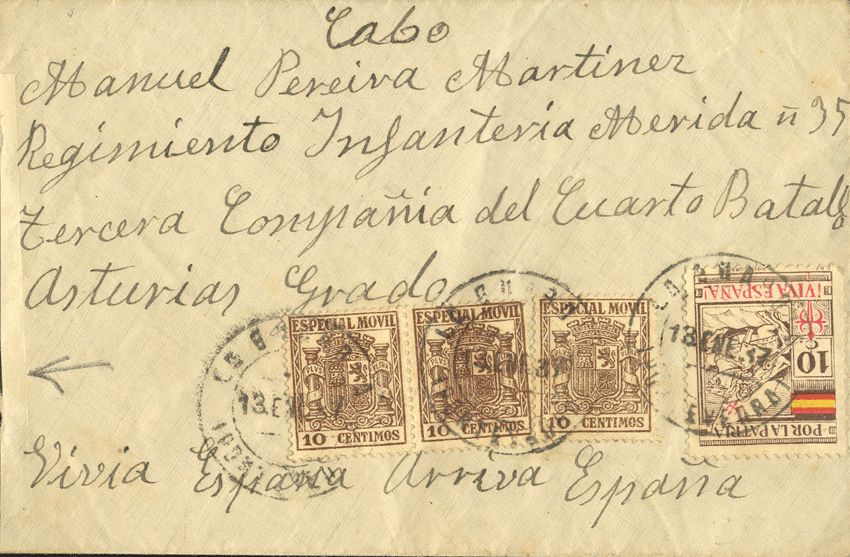 Cabo
Manuel Pereira Martinez
Regimiento Infanteria Merida ñ 35
tercera Compañia del Cuarto Batallo
Asturias Grado
ESPECIAL MOVIL
PLVS VLTRA
10 CENTIMOS
ESPECIAL MOVIL
PLVS VLTRA
10 CENTIMOS
ESPECIAL MOVIL
PLVS VLTRA
10 CENTIMOS
13.ENE.37
13.ENE.37
¡VIVA ESPAÑA!
10
POR LA PATRIA
Vivia España Arriva España